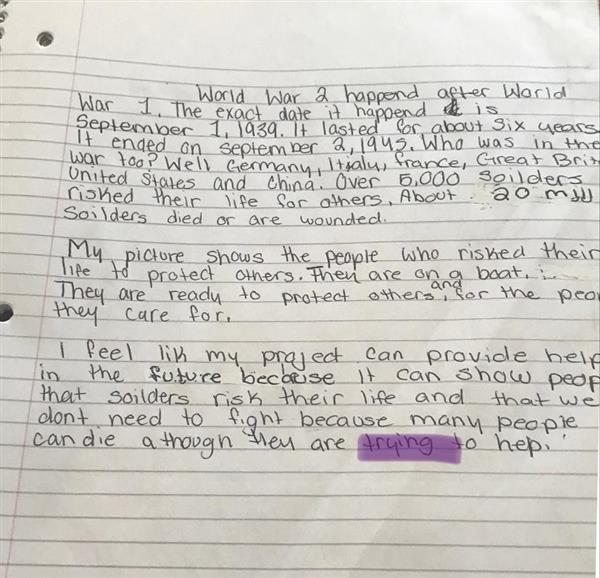 World War 2 happend after World
War 1. The exact date it happend is
September 1, 1939. It lasted for about six years
It ended on september 2, 1945. Who was in the
war too? Well Germany, Itialy, france, Great Brit
United States and China. Over 5,000 Soilders
risked their life for others. About 20 mill
Soilders died or are wounded.
My picture shows the people who risked their
life to protect others. They are on a boat.
They are ready to protect others, and for the peo
they care for.
I feel lik my project can provide help
in the future because it can show peop
that soilders risk their life and that we
dont need to fight because many people
can die a though they are trying to hep.